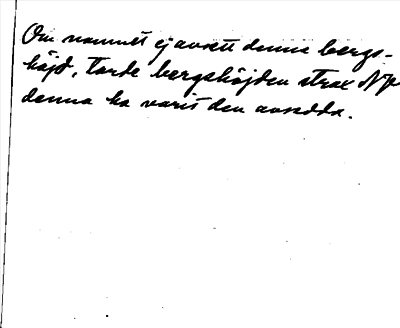 Om namnet ej avsett denna bergs-
höjd, torde bergshöjden strax N på
denna ha varit den avsedda.